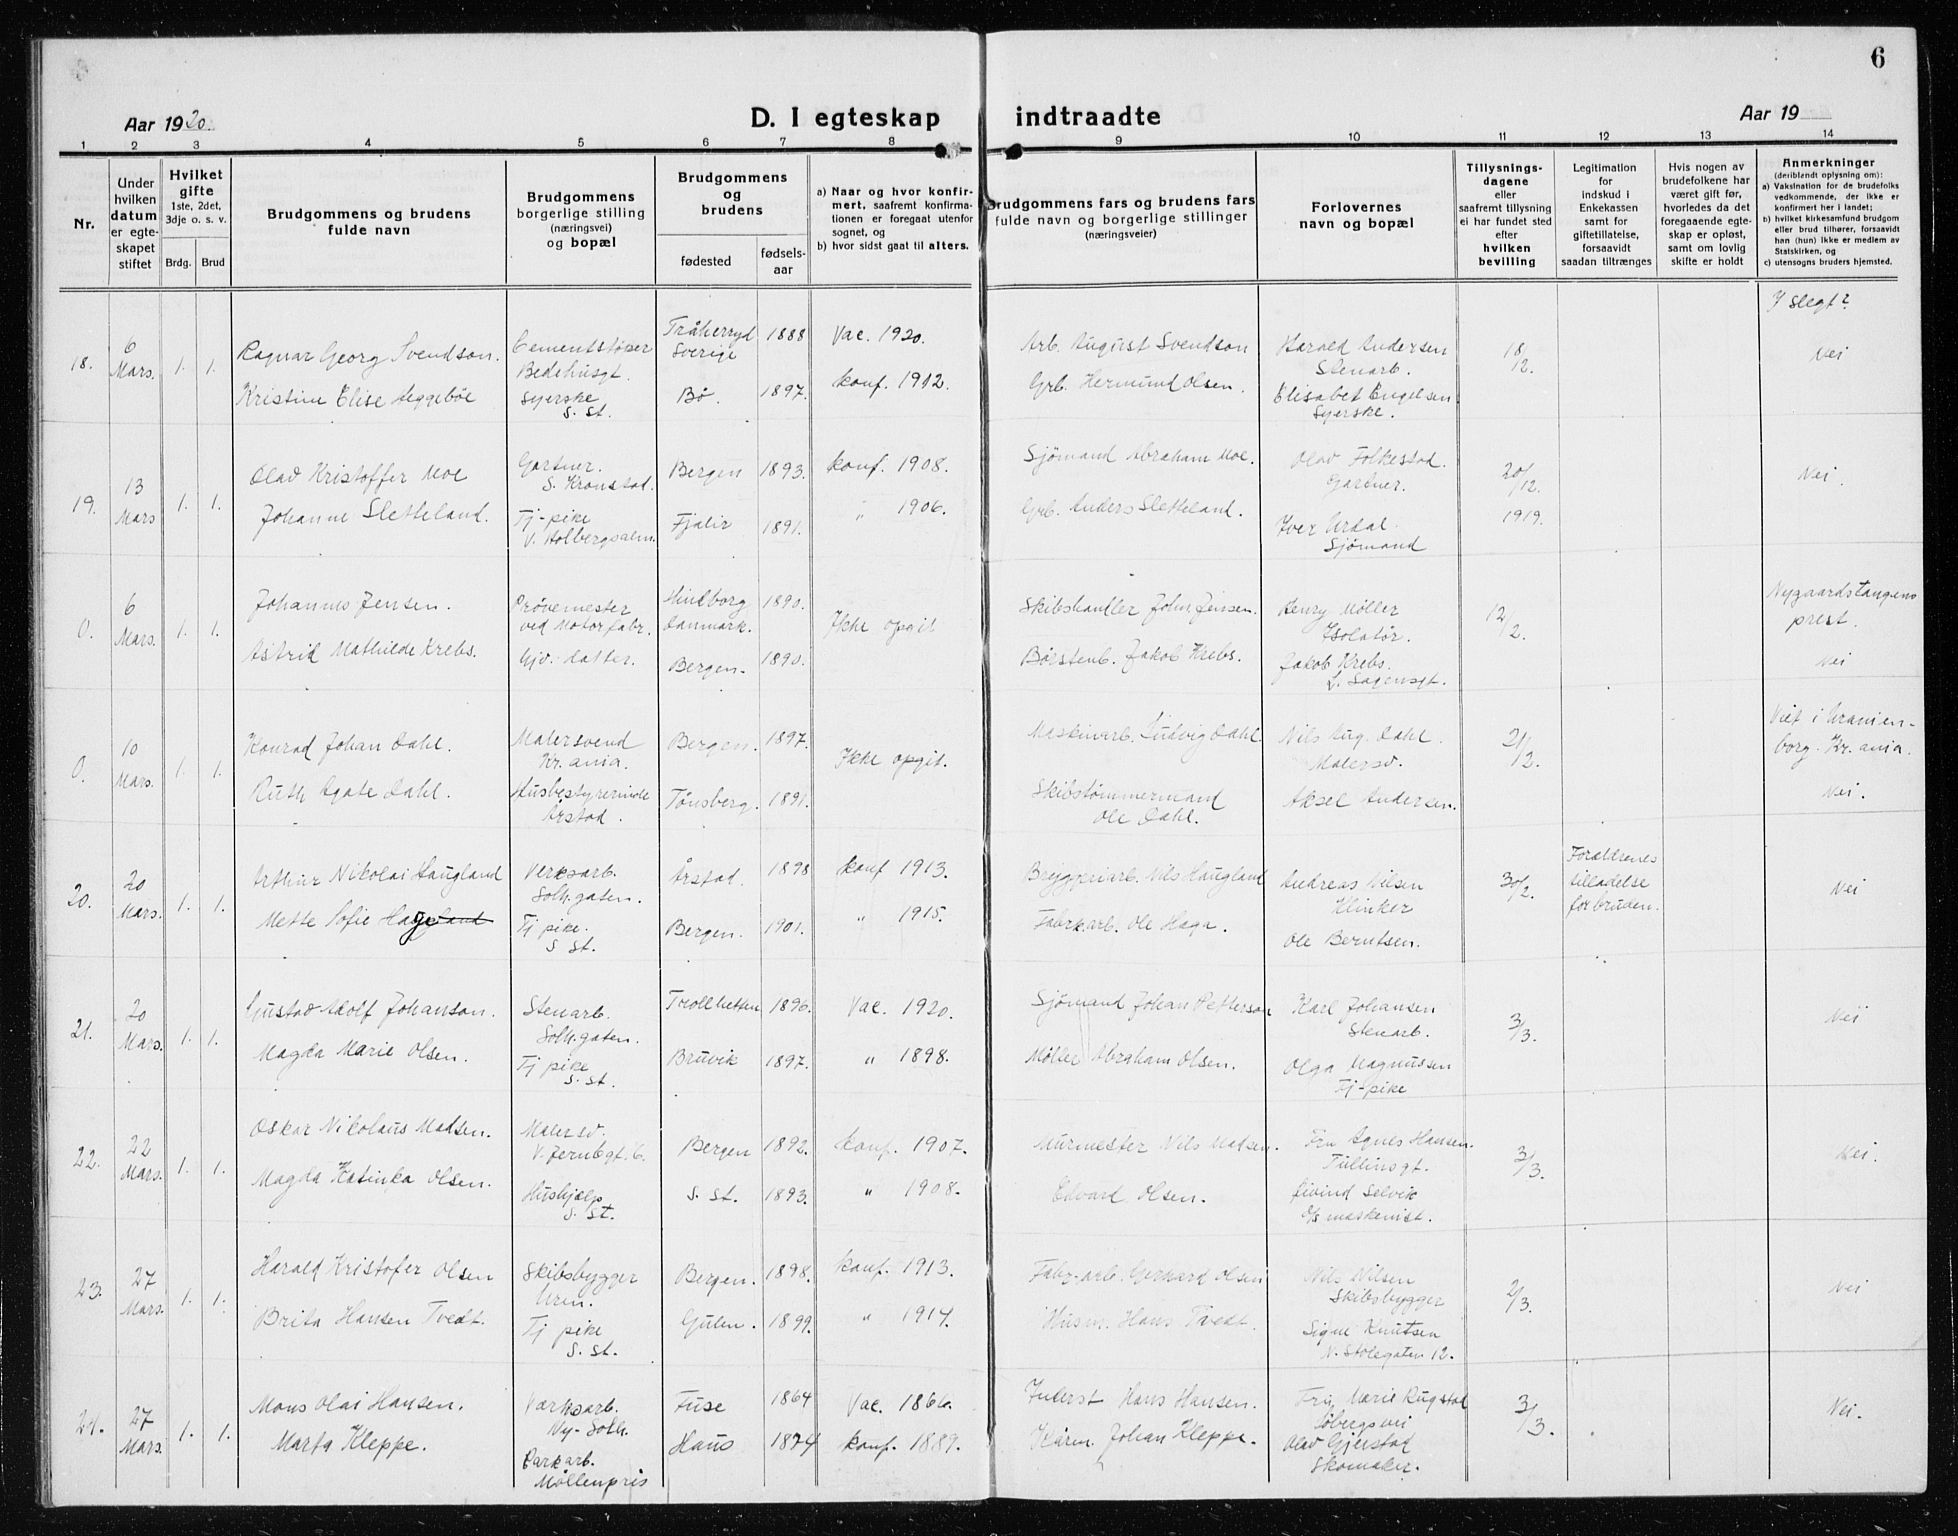 6
Aar 1920.
D. I egteskap indtraadte
Aar 19
1 2 3 4 5 6 7 8 9 10 11 12 13 14
Nr.
Under hvilken datum er egte-skapet stiftet
Hvilket gifte
1ste, 2det, 3dje o. s. v.
Brdg. Brud
Brudgommens og brudens
fulde navn
Brudgommens
borgerlige stilling
(næringsvei)
og bopæl
Brudgommens
og
brudens
fødested
fødsels-
aar
a) Naar og hvor konfir-
mert, saafremt konfirma-
tionen er foregaat utenfor
sognet, og
b) hvor sidst gaat til alters.
Brudgommens fars og brudens fars
fulde navn og borgerlige stillinger
(næringsveier)
Forlovernes
navn og bopæl
Tillysnings-
dagene
eller
saafremt tillysning
ei har fundet sted
efter
hvilken
bevilling
Legitimation
for
indskud i
Enkekassen
samt for
giftetillatelse,
forsaavidt
saadan tiltrænges
Hvis nogen av
brudefolkene har
været gift før,
hvorledes da det
foregaaende egte-
skap er opløst,
samt om lovlig
skifte er holdt
Anmerkninger
(deriblandt oplysning om):
a) Vaksination for de brudefolks
vedkommende, der ikke er
konfirmert her i landet;
b) hvilket kirkesamfund brudgom
eller brud tilhører, forsaavidt
han (hun) ikke er medlem av
Statskirken, og
c) utensogns bruders hjemsted.
I slegt?
18. 6 Mars. 1. 1.
Ragnar Georg Svendson. Cementstøper Bedehusgt. Tråheryd Sverige 1888 Vac. 1920. Arb. August Svendson Harald Andersen Stenarb. 18/12. Nei
Kristine Elise Heggebøe Syerske S. St. Bø. 1897. konf. 1912. Grb. Hermund Olsen. Elisabet Engelsen Syerske.
19. 13 Mars 1. 1.
Olav Kristoffer Moe Gartner. S. Kronstad. Bergen 1893. konf. 1908. Sjømand Abraham Moe. Olav Folkestad. Gartner. 20/12. 1919. Nei.
Johanne Sletteland. Tj-pike V. Holbergsalm. Fjalir 1891. " 1906. Grb. Anders Sletteland. Iver Urdal. Sjømand
0. 6 Mars. 1. 1.
Johannes Jensen. Prøvemester ved Motorfabr. Hindborg Danmark. 1890. Ikke opgit Skibshandler John Jensen. Henry Møller Isolatør. 12/2. Nygaardstangens prest.
Astrid Mathilde Krebs. Hjv. datter. Bergen. 1890. Børstenb. Jakob Krebs. Jakob Krebs. L. Sagensgt. Nei
0. 10 Mars. 1. 1.
Konrad Johan Dahl. Malersvend Kr.ania. Bergen. 1897. Ikke opgit. Maskinarb. Ludvig Dahl Nils Aug. Dahl. Malersv. 21/12. Viet i Uranien-borg. Kr.ania.
Ruth Agate Dahl. Husbestyrerinde Årstad. Tønsberg. 1891. Skibstømmermand Ole Dahl. Aksel Andersen. Nei.
20. 20 Mars. 1. 1.
Arthur Nikolai Haugland Verksarb. Solh.gaten. Årstad. 1898 konf 1913. Bryggeriarb. Nils Haugland Andreas Nilsen Klinker 30/2. Forældrenes tilladelse for bruden. Nei
Mette Sofie Hageland Tj pike. S St. Bergen. 1901. " 1915. Fabrkarb. Ole Haga. Ole Berntsen.
21. 20 Mars. 1. 1.
Gustav Adolf Johanson. Stenarb. Solh.gaten. Trollhettan 1896. Vac. 1920. Sjømand Johan Petterson Karl Johansen Stenarb. 3/3. Nei
Magda Marie Olsen. Tj pike S. St. Bruvik 1897. " 1898. Møller Abraham Olsen. Olga Magnussen Tj-pike
22. 22 Mars. 1. 1.
Oskar Nikolaus Madsen. Malersv. V. Jernbgt. 6. Bergen 1892. konf. 1907. Murmester Nils Madsen. Fru Agnes Hansen. Tullinsgt. 3/3. Nei.
Magda Katinka Olsen. Hushjælp S. St. S. St. 1893. " 1908. Edvard Olsen. Eivind Selvik O/S maskenist.
23. 27 Mars. 1. 1.
Harald Kristofer Olsen Skibsbygger Uren. Bergen. 1898. konf. 1913. Fabr-arb. Gerhard Olsen Nils Nilsen Skibsbygger 2/3. Nei
Brita Hansen Tvedt. Tj pike S. St. Gulen. 1899. " 1914. Husm. Hans Tvedt. Signe Knutsen N. Stølegaten 12.
24. 27 Mars. 1. 1.
Mons Olai Hansen. Værksarb. Ny-Solh. Fuse 1864 Vac. 1866. Inderst Hans Hansen. Fru Marie Rugstad Løbergsvei 3/3. Nei.
Marta Kleppe. Parkarb. Møllenpris Haus 1874 konf. 1889. Kårm. Johan Kleppe. Olav Gjerstad Skomaker.